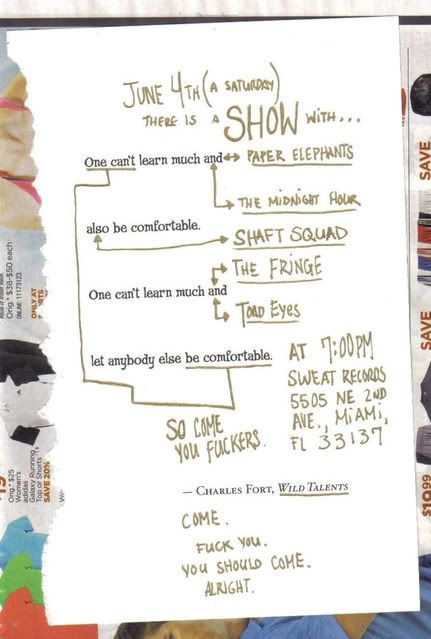 JUNE 4TH (A SATURDAY)
THERE IS A SHOW WITH...
One can't learn much and PAPER ELEPHANTS
THE MIDNIGHT HOUR
also be comfortable. SHAFT SQUAD
THE FRINGE
One can't learn much and
TOAD EYES
let anybody else be comfortable. AT 7:00PM
SWEAT RECORDS
5505 NE 2ND
AVE., MIAMI,
FL 33137
SO COME
YOU FUCKERS.
— CHARLES FORT, WILD TALENTS
COME.
FUCK YOU.
YOU SHOULD COME.
ALRIGHT.
Orig.* $38-$50 each
ONLINE: 11173123
ONLY AT
Orig. $25
Women's
adidas
Galaxy Running
Top or Shorts
SAVE 20%
SAVE
SAVE
$1999